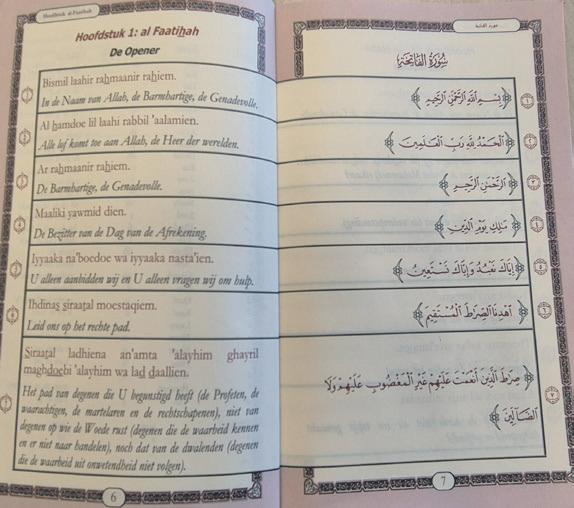 Hoofdstuk al-Faatihah
Hoofdstuk 1: al Faatihah
De Opener
Bismil laahir rahmaanir rahiem.
In de Naam van Allah, de Barmhartige, de Genadevolle.
Al hamdoe lil laahi rabbil 'aalamien.
Alle lof komt toe aan Allah, de Heer der werelden.
Ar rahmaanir rahiem.
De Barmhartige, de Genadevolle.
Maaliki yawmid dien.
De Bezitter van de Dag van de Afrekening.
Iyyaaka na'boedoe wa iyyaaka nasta'ien.
U alleen aanbidden wij en U alleen vragen wij om hulp.
Ihdinas siraatal moestaqiem.
Leid ons op het rechte pad.
Siraatal ladhiena an'amta 'alayhim ghayril
maghdoebi 'alayhim wa lad daallien.
Het pad van degenen die U begunstigd heeft (de Profeten, de
waarachtigen, de martelaren en de rechtschapenen), niet van
degenen op wie de Woede rust (degenen die de waarheid kennen
en er niet naar handelen), noch dat van de dwalenden (degenen
die de waarheid uit onwetendheid niet volgen).
6
سورة الفاتحة
سُورَةُ الفَاتِحَةِ
﴿بِسْمِ اللَّهِ الرَّحْمَٰنِ الرَّحِيمِ﴾
١
﴿الْحَمْدُ لِلَّهِ رَبِّ الْعَالَمِينَ﴾
٢
﴿الرَّحْمَٰنِ الرَّحِيمِ﴾
٣
﴿مَالِكِ يَوْمِ الدِّينِ﴾
٤
﴿إِيَّاكَ نَعْبُدُ وَإِيَّاكَ نَسْتَعِينُ﴾
٥
﴿اهْدِنَا الصِّرَاطَ الْمُسْتَقِيمَ﴾
٦
﴿صِرَاطَ الَّذِينَ أَنْعَمْتَ عَلَيْهِمْ غَيْرِ الْمَغْضُوبِ عَلَيْهِمْ وَلَا
الضَّالِّينَ﴾
٧
7